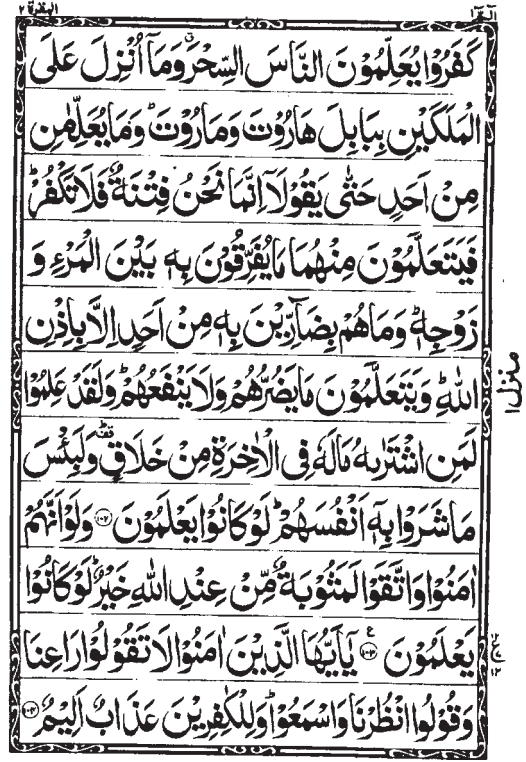 البقرة ٢
الٓمّٓ ١
كَفَرُوْا يُعَلِّمُوْنَ النَّاسَ السِّحْرَ ۗ وَمَآ اُنْزِلَ عَلَى
الْمَلَكَيْنِ بِبَابِلَ هَارُوْتَ وَمَارُوْتَ ؕ وَمَا يُعَلِّمٰنِ
مِنْ اَحَدٍ حَتّٰى يَقُوْلَآ اِنَّمَا نَحْنُ فِتْنَةٌ فَلَا تَكْفُرْ ؕ
فَيَتَعَلَّمُوْنَ مِنْهُمَا مَا يُفَرِّقُوْنَ بِهٖ بَيْنَ الْمَرْءِ وَ
زَوْجِهٖ ؕ وَمَا هُمْ بِضَآرِّيْنَ بِهٖ مِنْ اَحَدٍ اِلَّا بِاِذْنِ
اللّٰهِ ؕ وَيَتَعَلَّمُوْنَ مَا يَضُرُّهُمْ وَلَا يَنْفَعُهُمْ ؕ وَلَقَدْ عَلِمُوْا
لَمَنِ اشْتَرٰىهُ مَا لَهٗ فِى الْاٰخِرَةِ مِنْ خَلَاقٍ ۛ وَلَبِئْسَ
مَا شَرَوْا بِهٖٓ اَنْفُسَهُمْ ؕ لَوْ كَانُوْا يَعْلَمُوْنَ ﴿۱۰۲﴾ وَلَوْ اَنَّهُمْ
اٰمَنُوْا وَاتَّقَوْا لَمَثُوْبَةٌ مِّنْ عِنْدِ اللّٰهِ خَيْرٌ ؕ لَوْ كَانُوْا
يَعْلَمُوْنَ ﴿۱۰۳﴾ ع يٰٓاَيُّهَا الَّذِيْنَ اٰمَنُوْا لَا تَقُوْلُوْا رَاعِنَا
وَقُوْلُوا انْظُرْنَا وَاسْمَعُوْا ؕ وَلِلْكٰفِرِيْنَ عَذَابٌ اَلِيْمٌ ﴿۱۰۴﴾
منزل ١